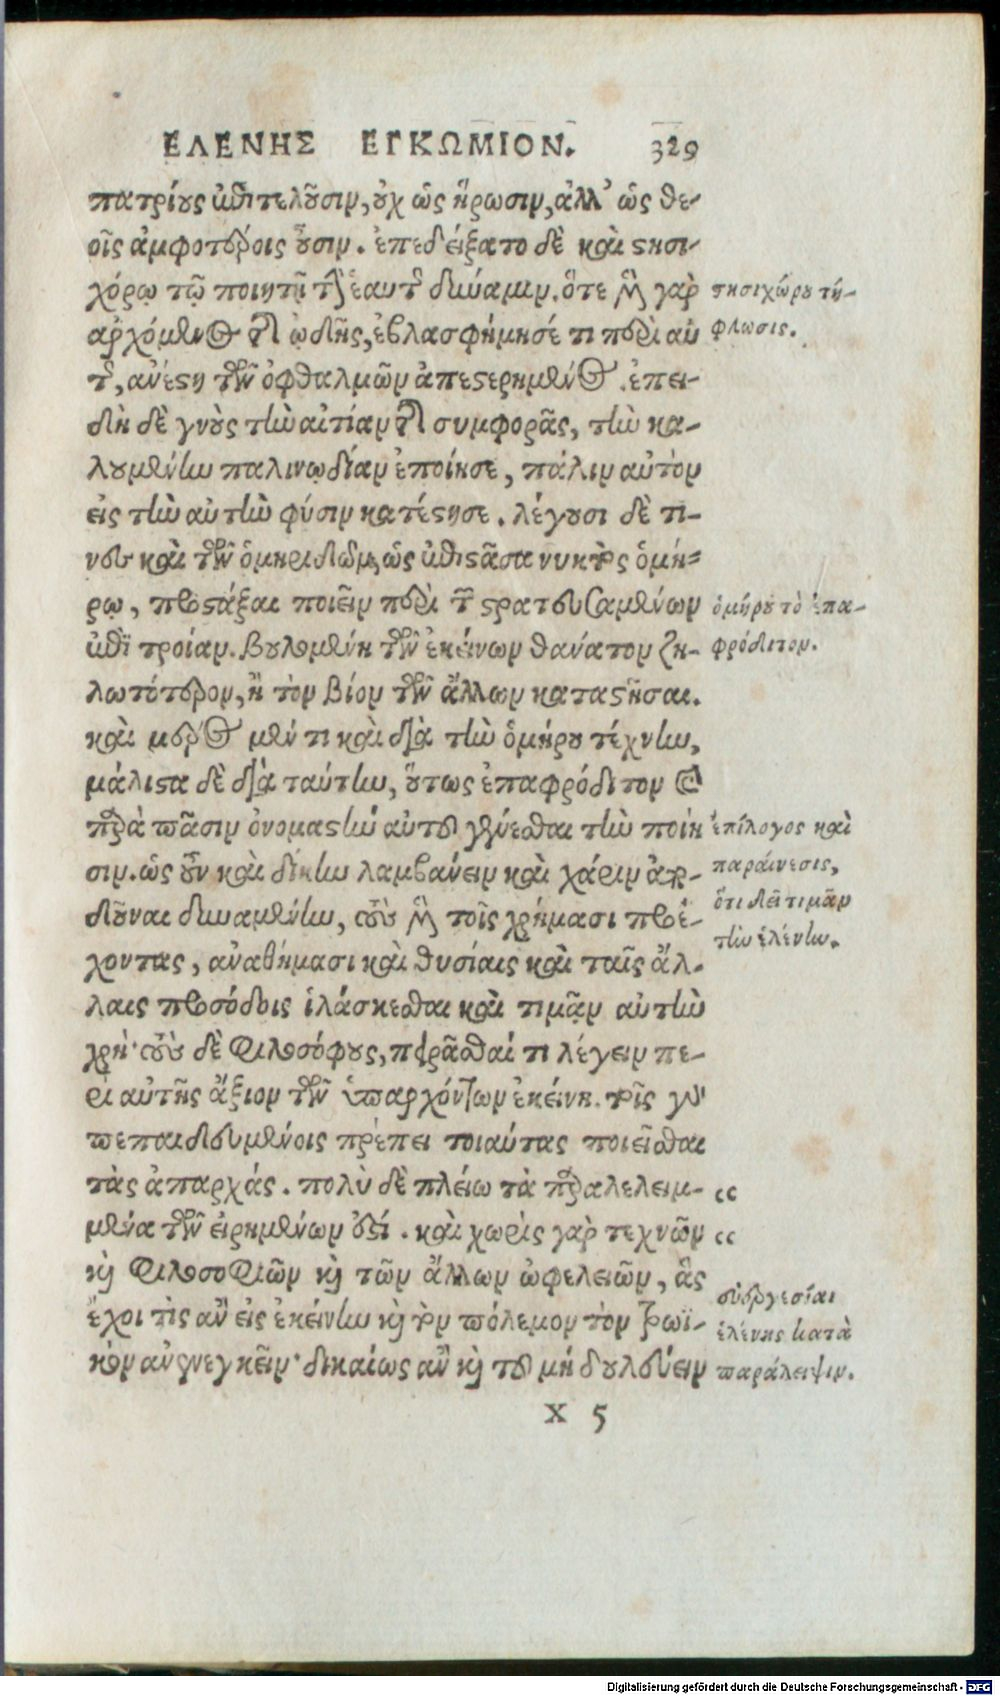 ΕΛΕΝΗΣ ΕΓΚΩΜΙΟΝ. 329
πατρίους ἐπιτελοῦσιν, οὐχ ὡς ἥρωσιν, ἀλλ' ὡς θε-
οῖς ἀμφοτέροις οὖσιν. ἐπεδείξατο δὲ καὶ στησι-
χόρῳ τῷ ποιητῇ τὴν ἑαυτῆς δύναμιν. ὅτε μὲν γὰρ
ἀρχόμενος τῆς ᾠδῆς, ἐβλασφήμησέ τι περὶ αὐ
τῆς, ἀνέστη τῶν ὀφθαλμῶν ἀπεστερημένος. ἐπει-
δὴ δὲ γνοὺς τὴν αἰτίαν τῆς συμφορᾶς, τὴν κα-
λουμένην παλινῳδίαν ἐποίησε, πάλιν αὐτὸν
εἰς τὴν αὐτὴν φύσιν κατέστησε. λέγουσι δέ τι-
νες καὶ τῶν ὁμηριδῶν, ὡς ἐπιστᾶσα νυκτὸς ὁμή-
ρῳ, προστάξαι ποιεῖν περὶ τῶν στρατευσαμένων
ἐπὶ τροίαν. βουλομένη τῶν ἐκείνων θάνατον ζη-
λωτότερον, ἢ τὸν βίον τῶν ἄλλων καταστῆσαι.
καὶ μέρος μέν τι καὶ διὰ τὴν ὁμήρου τέχνην,
μάλιστα δὲ διὰ ταύτην, οὕτως ἐπαφρόδιτον καὶ
παρὰ πᾶσιν ὀνομαστὴν αὐτοῦ γενέσθαι τὴν ποίη
σιν. ὡς οὖν καὶ δίκην λαμβάνειν καὶ χάριν ἀπο-
δοῦναι δυναμένην, τοὺς μὲν τοῖς χρήμασι προέ-
χοντας, ἀναθήμασι καὶ θυσίαις καὶ ταῖς ἄλ-
λαις προσόδοις ἱλάσκεσθαι καὶ τιμᾷν αὐτὴν
χρή· τοὺς δὲ φιλοσόφους, πειρᾶσθαί τι λέγειν πε-
ρὶ αὐτῆς ἄξιον τῶν ὑπαρχόντων ἐκείνῃ. τοῖς γὰρ
πεπαιδευμένοις πρέπει τοιαύτας ποιεῖσθαι
τὰς ἀπαρχάς. πολὺ δὲ πλείω τὰ παραλελειμ-
μένα τῶν εἰρημένων ἐστί. καὶ χωρὶς γὰρ τεχνῶν
καὶ φιλοσοφιῶν καὶ τῶν ἄλλων ὠφελειῶν, ἃς
ἔχοι τὶς ἂν εἰς ἐκείνην καὶ τὸν πόλεμον τὸν τρωϊ-
κὸν ἀνενεγκεῖν· δικαίως ἂν καὶ τοῦ μὴ δουλεύειν
χ 5
στησιχώρου τύ-
φλωσις.
ὁμήρου τὸ ἐπα-
φρόδιτον.
ἐπίλογος καὶ
παραίνεσις,
ὅτι δεῖ τιμᾷν
τὴν ἑλένην.
“
“
εὐεργεσίαι
ἑλένης κατὰ
παράλειψιν.
Digitalisierung gefördert durch die Deutsche Forschungsgemeinschaft - DFG